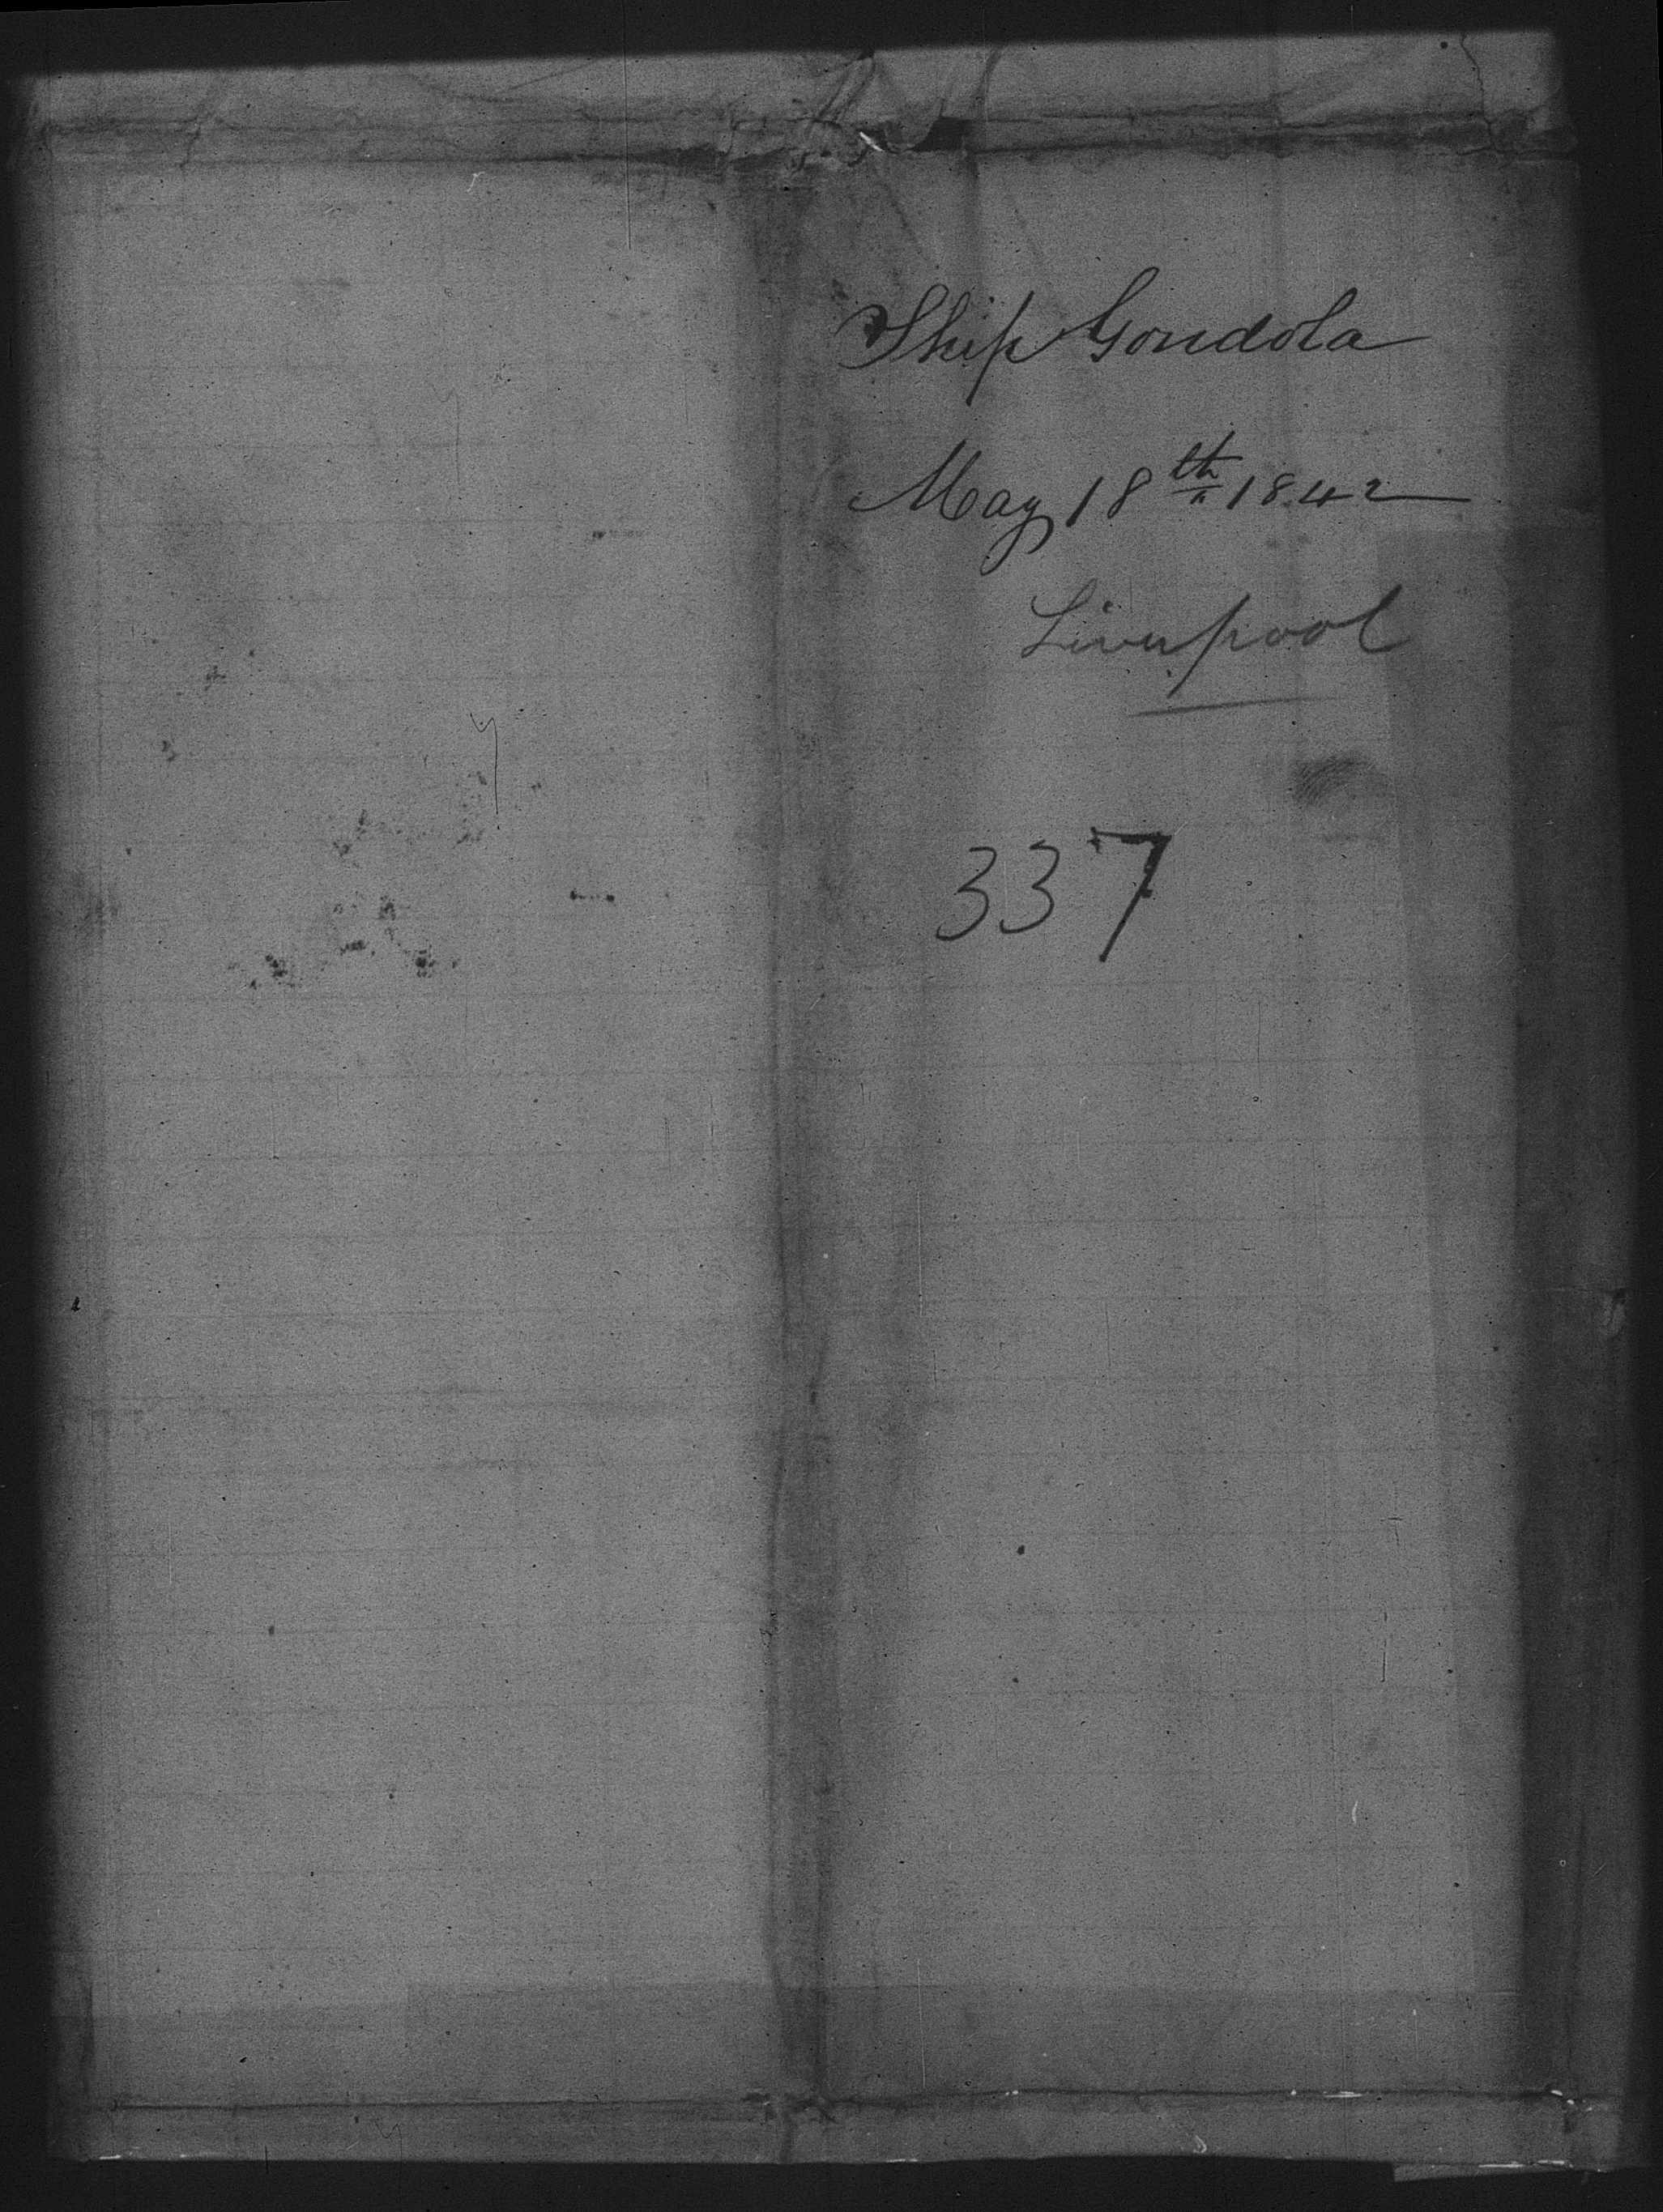 Ship Gondola
May 18th 1842
Liverpool
337